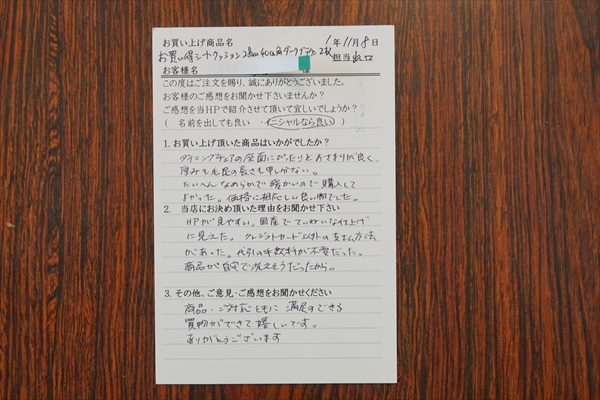 お買い上げ商品名
1年11月8日
お買い得シートクッション 40cm角ダークブラウン2枚
担当
お客様名
この度はご注文を賜り、誠にありがとうございました。
お客様のご感想をお聞かせ下さいませんか？
ご感想を当HPで紹介させて頂いて宜しいでしょうか？
( 名前を出しても良い ・イニシャルなら良い )
1. お買い上げ頂いた商品はいかがでしたか？
ダイニングチェアの座面にぴったりとおさまりが良く
厚みも毛足の長さも申し分ない。
たいへんなめらかで暖かいので購入して
よかった。価格に相応しい良い物でした。
2. 当店にお決め頂いた理由をお聞かせ下さい
HPが見やすい。国産でていねいな仕上げ
に見えた。クレジットカード以外の支払方法
があった。代引の手数料が不要だった。
商品が自宅で洗えそうだったから。
3. その他、ご意見・ご感想をお聞かせください
商品・ご対応ともに満足のできる
買物ができて嬉しいです。
ありがとうございます